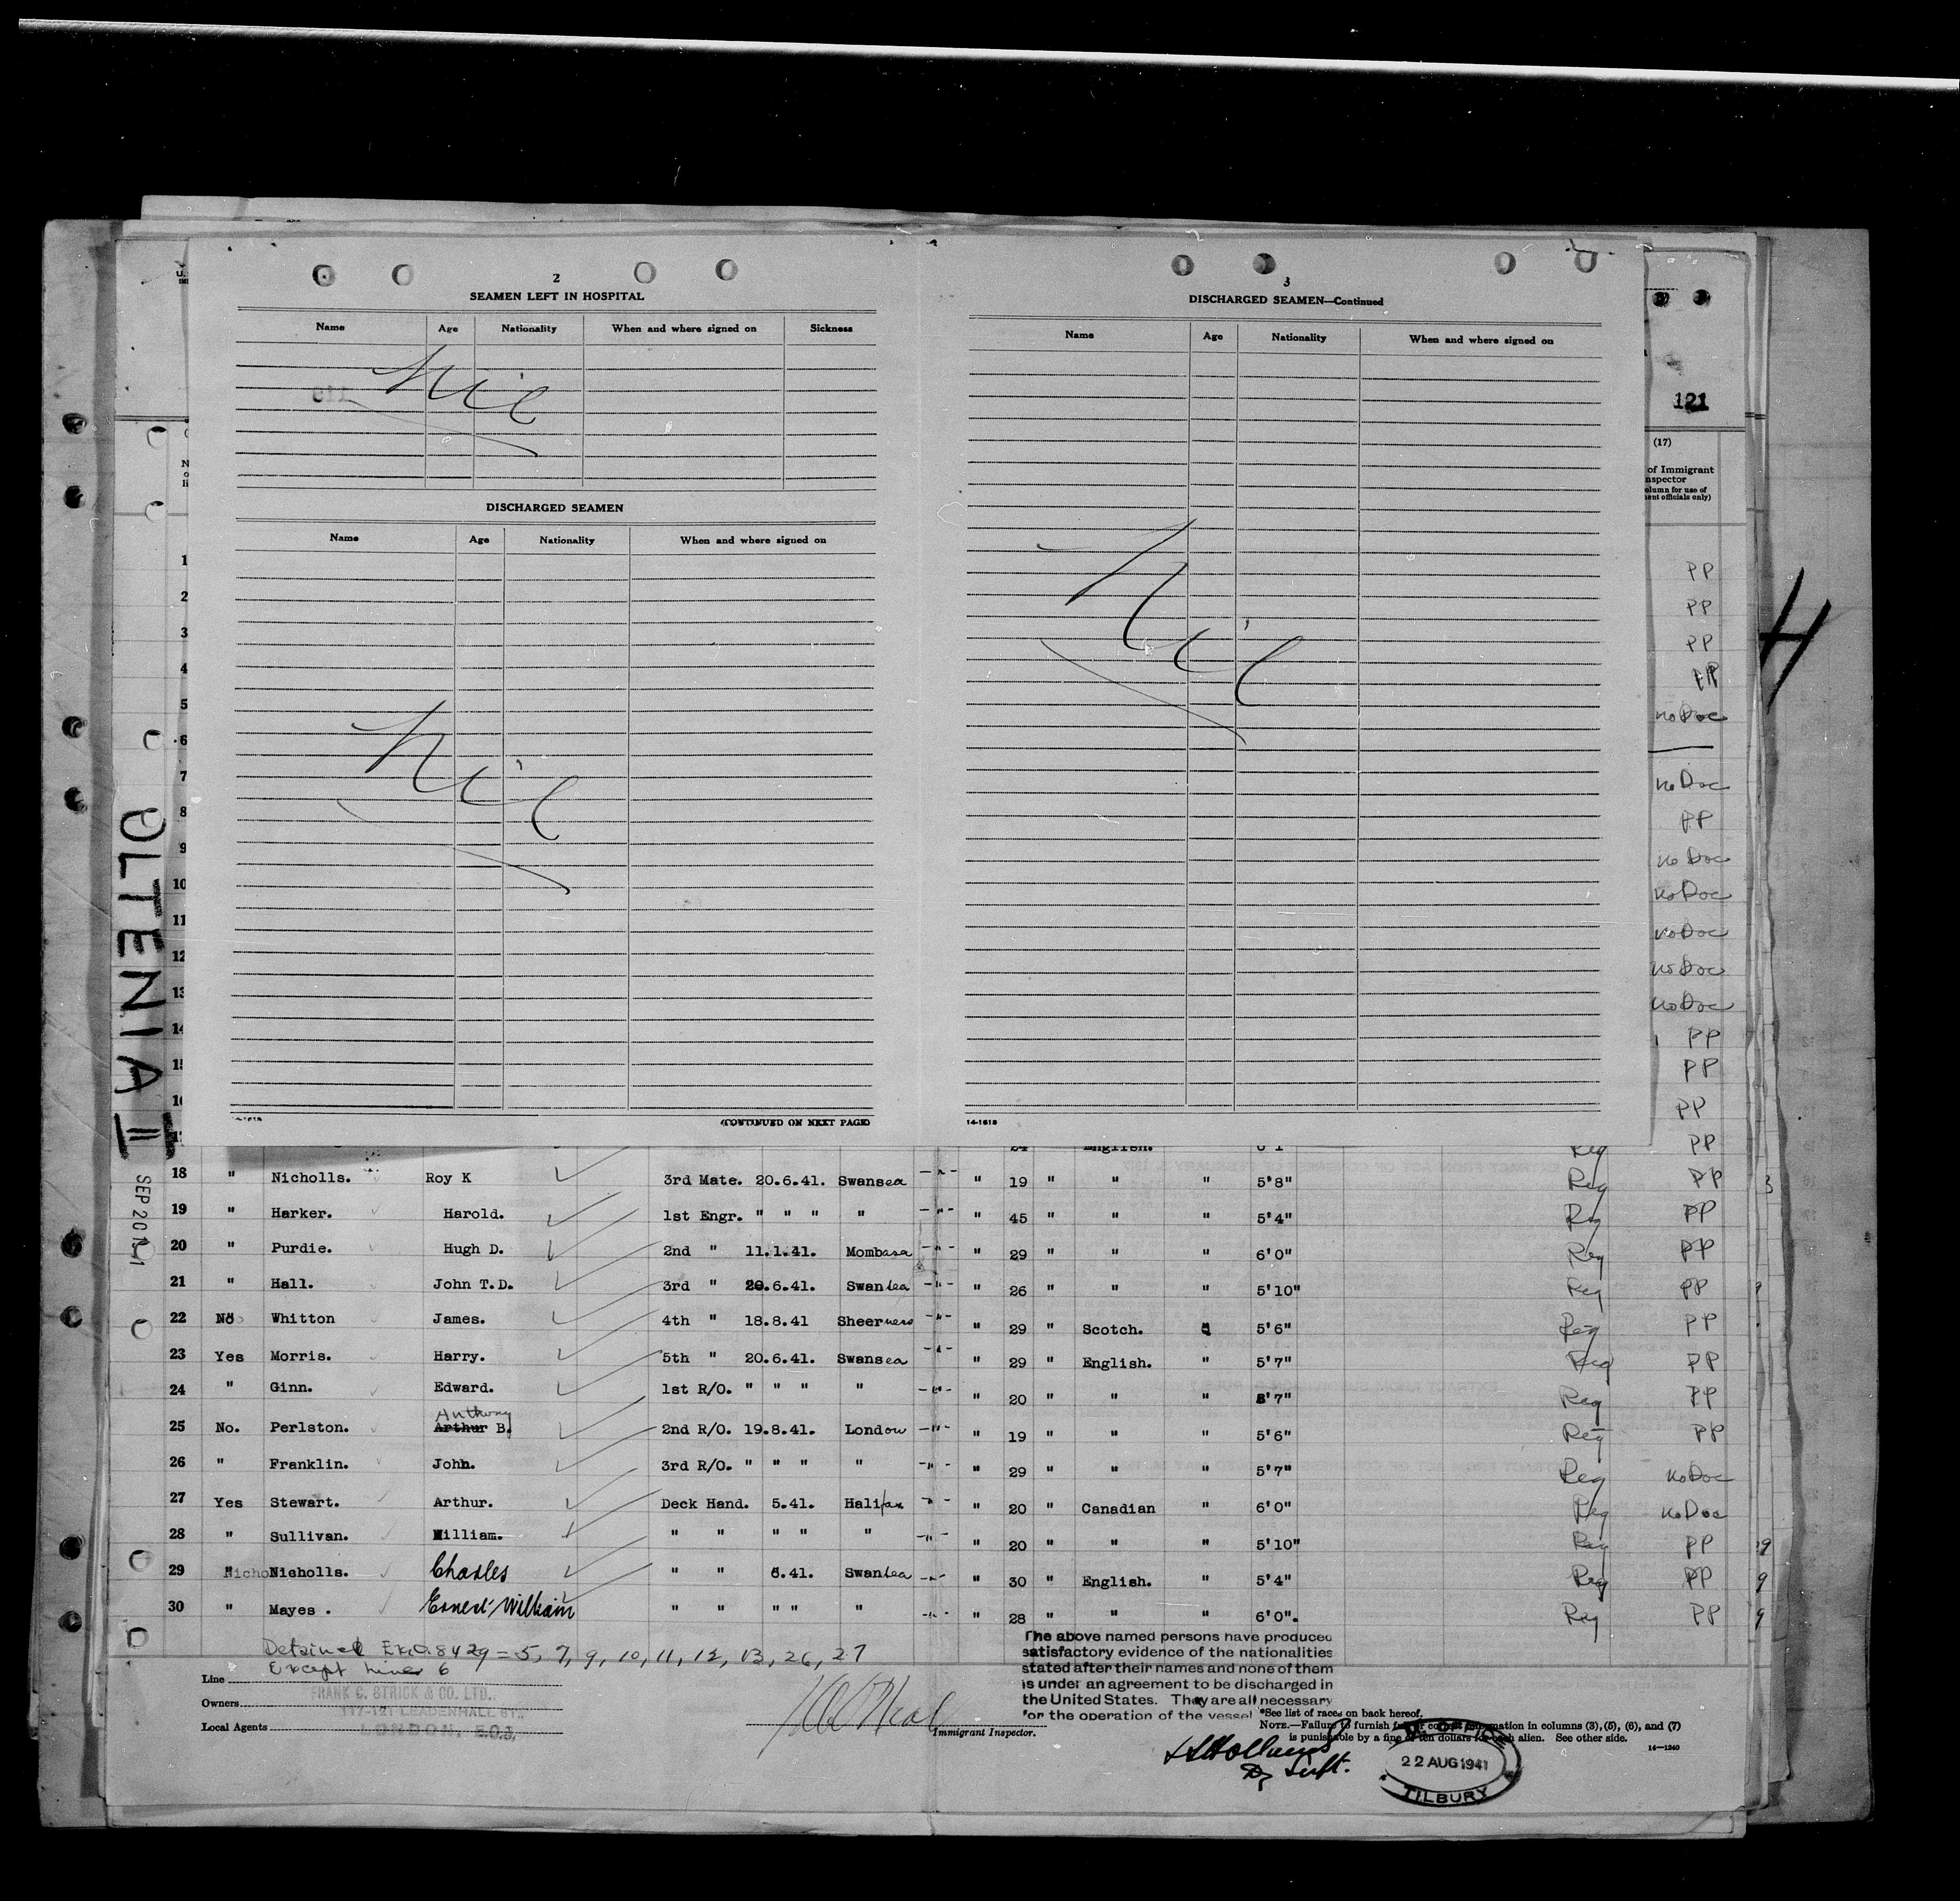 2
SEAMEN LEFT IN HOSPITAL
Name Age Nationality When and where signed on Sickness
Nil
DISCHARGED SEAMEN
Name Age Nationality When and where signed on
Nil
(CONTINUED ON NEXT PAGE)
3
DISCHARGED SEAMEN—Continued
Name Age Nationality When and where signed on
Nil
14-1618
121
(17)
of Immigrant
nspector
olumn for use of
ent officials only)
H
OLTENIA II
SEP 20 1941
1 PP
2 PP
3 PP
4 PP
5 no Doc
6
7 no Doc
8 PP
9 no Doc
10 no Doc
11 no Doc
12 no Doc
13 no Doc
14 PP
PP
PP
24 English. 6'1 Reg PP
18 " Nicholls. Roy K 3rd Mate. 20.6.41. Swansea -"- " 19 " " " 5'8" Reg PP 3
19 " Harker. Harold. 1st Engr. " " " " -"- " 45 " " " 5'4" Reg PP
20 " Purdie. Hugh D. 2nd " 11.1.41. Mombasa -"- " 29 " " " 6'0" Reg PP
21 " Hall. John T.D. 3rd " 20.6.41. Swansea -"- " 26 " " " 5'10" Reg PP 9
22 No Whitton James. 4th " 18.8.41 Sheerness -"- " 29 " Scotch. " 5'6" Reg PP
23 Yes Morris. Harry. 5th " 20.6.41. Swansea -"- " 29 " English. " 5'7" Reg PP
24 " Ginn. Edward. 1st R/O. " " " " -"- " 20 " " " 5'7" Reg PP
Anthony
25 No. Perlston. Arthur B. 2nd R/O. 19.8.41. London -"- " 19 " " " 5'6" Reg PP
26 " Franklin. John. 3rd R/O. " " " " -"- " 29 " " " 5'7" Reg no Doc
27 Yes Stewart. Arthur. Deck Hand. 5.41. Halifax -"- " 20 " Canadian " 6'0" Reg no Doc
28 " Sullivan. William. " " " " " -"- " 20 " " " 5'10" Reg PP 9
29 " Nicholls. Charles " " 6.41. Swansea -"- " 30 " English. " 5'4" Reg PP 9
30 " Mayes . Ernest William " " " " " -"- " 28 " " " 6'0". Reg PP 9
Detained Ex.O.8429 = 5, 7, 9, 10, 11, 12, 13, 26, 27
Except line 6
Line
FRANK C. STRICK & CO. LTD.
Owners
117-121 LEADENHALL ST.
Local Agents
LONDON. E.C.3.
Immigrant Inspector.
The above named persons have produced
satisfactory evidence of the nationalities
stated after their names and none of them
is under an agreement to be discharged in
the United States. They are all necessary
for the operation of the vessel
*See list of races on back hereof.
NOTE.—Failure to furnish full or correct information in columns (3), (5), (6), and (7)
is punishable by a fine of ten dollars for each alien. See other side.
14—1240
Holland
Dy Supt.
M. OFFICE
22 AUG 1941
TILBURY